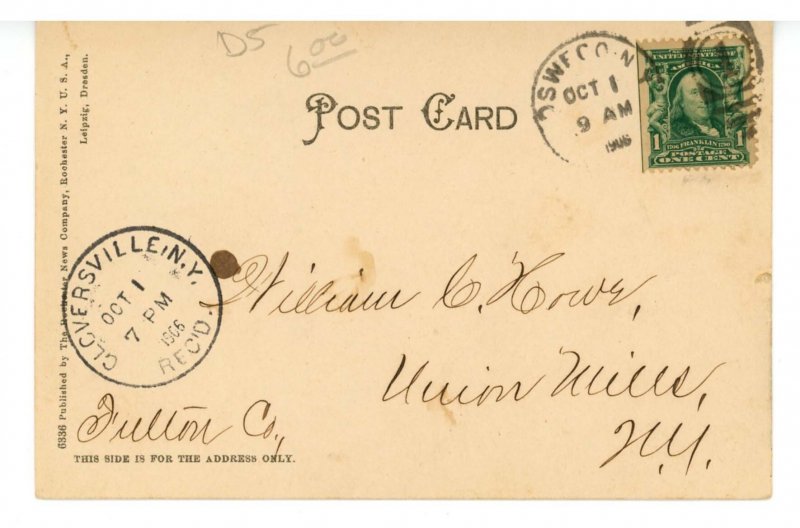 D5
6.00
POST CARD
OSWEGO N
OCT 1
9 AM
1906
UNITED STATES OF
AMERICA
1 1706 FRANKLIN 1790 1
POSTAGE
ONE CENT
6336 Published by The Rochester News Company, Rochester N. Y. U. S. A.,
Leipzig, Dresden.
GLOVERSVILLE, N.Y.
OCT 1
7 PM
1906
REC'D.
William C. Howe,
Union Mills,
Fulton Co.,
N.Y.
THIS SIDE IS FOR THE ADDRESS ONLY.